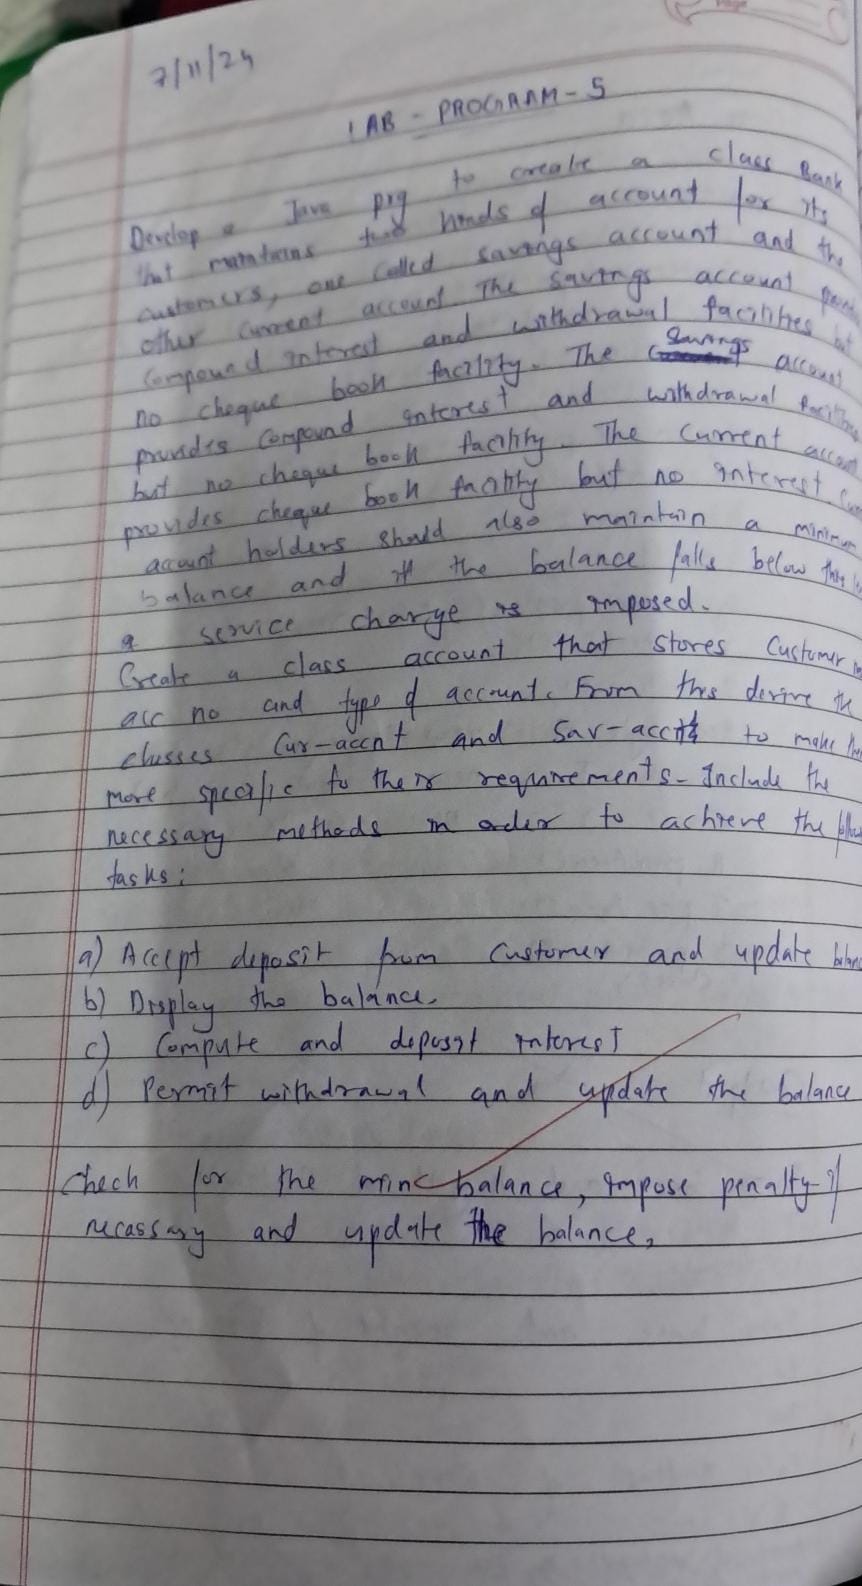 Page
7/11/24
LAB - PROGRAM - 5
Develop a Java prg to create a class Bank
that maintains two kinds of account for its
customers, one called savings account and the
other current account. The savings account
compound interest and withdrawal facilities but
no cheque book facility. The savings account
provides compound interest and withdrawal
but no cheque book facility. The current account
provides cheque book facility but no interest
account holders should also maintain a minimum
balance and if the balance falls below this
a service charge is imposed.
Create a class account that stores customer
acc no and type of account. From this derive the
classes Cur-accnt and Sav-accnt to make
more specific to their requirements. Include the
necessary methods in order to achieve the
tasks:
a) Accept deposit from customer and update
b) Display the balance.
c) Compute and deposit interest
d) Permit withdrawal and update the balance
Check for the min balance, impose penalty if
necassary and update the balance,